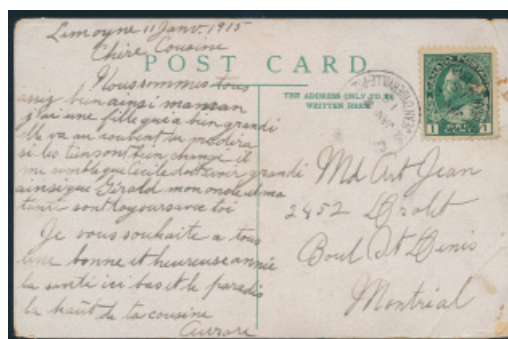 Lemoyne 11 Janv. 1915
Chère Cousine
POST CARD
Nous sommes tous
assez bien ainsi maman
j'ai une fille qui a bien grandi
Elle va au couvent tu
si les tiens ont bien changé il
me semble que Cecile doit avoir grandi
ainsi que Girald mon oncle et ma
tante sont toyours avec toi
Je vous souhaite a tous
une bonne et heureuse année
la santé ici bas et le paradis
la haut de ta cousine
Aurore
THE ADDRESS ONLY TO BE
WRITTEN HERE
CANADA POSTAGE
1 1
Md Art Jean
2452
Boul St Denis
Montréal